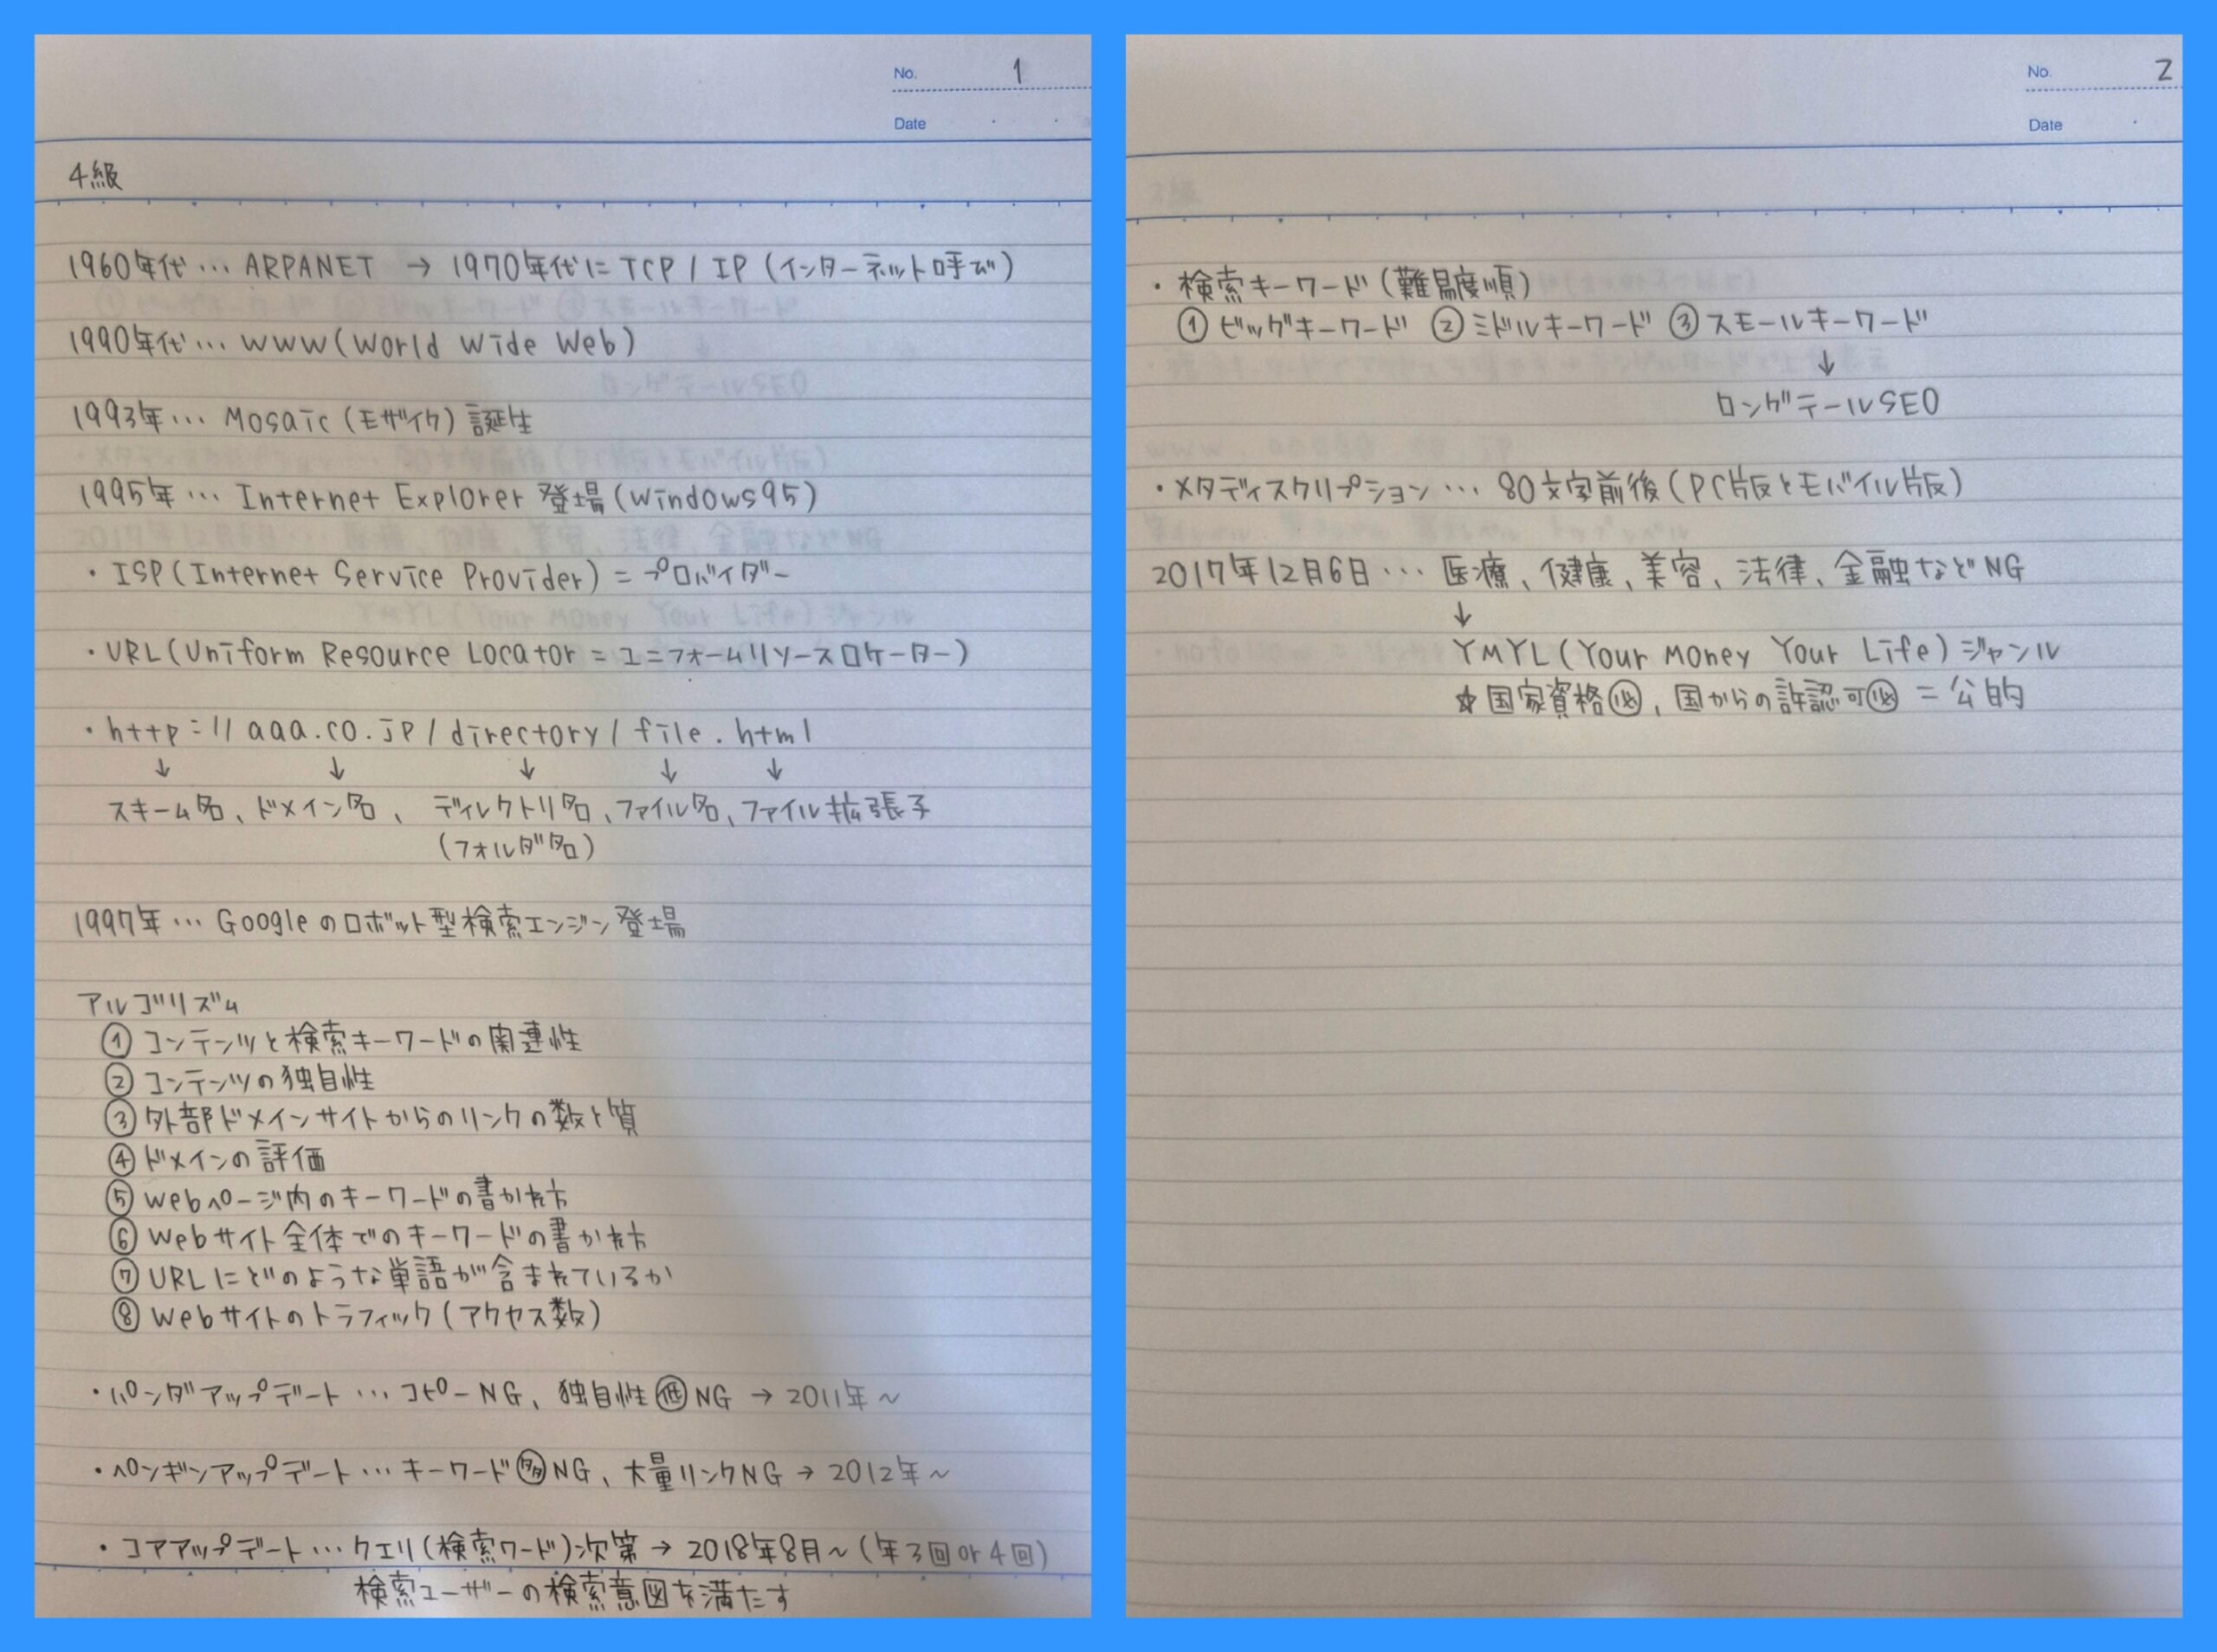 No. 1
Date
4級
1960年代… ARPANET → 1970年代に TCP / IP (インターネット呼び)
1990年代… WWW (World Wide Web)
1993年… Mosaic (モザイク) 誕生
1995年… Internet Explorer 登場 (Windows95)
・ISP (Internet Service Provider) = プロバイダー
・URL (Uniform Resource Locator = ユニフォームリソースロケーター)
・http://aaa.co.jp/directory/file.html
↓ ↓ ↓ ↓ ↓
スキーム名、ドメイン名、ディレクトリ名、ファイル名、ファイル拡張子
(フォルダ名)
1997年… Googleのロボット型検索エンジン登場
アルゴリズム
① コンテンツと検索キーワードの関連性
② コンテンツの独自性
③ 外部ドメインサイトからのリンクの数と質
④ ドメインの評価
⑤ Webページ内のキーワードの書かれ方
⑥ Webサイト全体でのキーワードの書かれ方
⑦ URLにどのような単語が含まれているか
⑧ Webサイトのトラフィック (アクセス数)
・パンダアップデート… コピーNG、独自性㊦NG → 2011年~
・ペンギンアップデート… キーワード多NG、大量リンクNG → 2012年~
・コアアップデート… クエリ (検索ワード) 次第 → 2018年8月~ (年3回or4回)
検索ユーザーの検索意図を満たす
No. 2
Date
・検索キーワード (難易度順)
① ビッグキーワード ② ミドルキーワード ③ スモールキーワード
↓
ロングテールSEO
・メタディスクリプション… 80文字前後 (PC版とモバイル版)
2017年12月6日… 医療、健康、美容、法律、金融などNG
↓
YMYL (Your Money Your Life) ジャンル
☆国家資格必, 国からの許認可必 = 公的